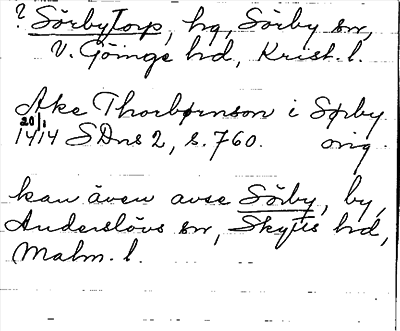 ? Sörbytorp, hg, Sörby sn,
V. Göinge hd, Krist. l.
Ake Thorbørnson i Sørby
20/1
1414 SDns 2, s. 760. orig.
kan även avse Sörby, by,
Anderslövs sn, Skytts hd,
Malm. l.